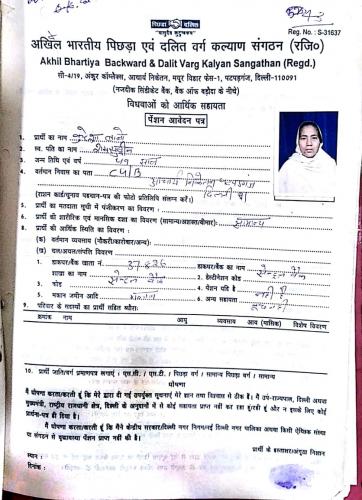 पिछड़ा दलित
"वसुधैव कुटुम्बकम"
Reg. No. : S-31637
अखिल भारतीय पिछड़ा एवं दलित वर्ग कल्याण संगठन (रजि०)
Akhil Bhartiya Backward & Dalit Varg Kalyan Sangathan (Regd.)
सी-4/19, अंकुर कॉम्पलैक्स, आचार्य निकेतन, मयूर विहार फेस-1, पटपड़गंज, दिल्ली-110091
(नजदीक सिंडीकेट बैंक, बैंक ऑफ बड़ौदा के नीचे)
विधवाओं को आर्थिक सहायता
पेंशन आवेदन पत्र
1. प्रार्थी का नाम
2. स्व. पति का नाम
3. जन्म तिथि एवं वर्ष
4. वर्तमान निवास का पता C4/B
(राशन कार्ड/चुनाव पहचान-पत्र की फोटो प्रतिलिपि संलग्न करें।)
5. प्रार्थी का मतदाता सूची में पंजीकरण का विवरण :
6. प्रार्थी की शारीरिक एवं मानसिक दशा का विवरण (सामान्य/अशक्त/बीमार): सामान्य
8. प्रार्थी की आर्थिक स्थिति का विवरण :
(क) वर्तमान व्यवसाय (नौकरी/कारोबार/अन्य):
(ख) चल/अचल/संपत्ति विवरण
1. डाकघर/बैंक खाता नं. 37826 डाकघर/बैंक का नाम सेन्ट्रल बैंक
शाखा का नाम 2. डेस्टीनेशन कोड
3. कोड 4. पेंशन यदि है नहीं है
5. मकान जमीन आदि 6. अन्य सहायता
9. परिवार के सदस्यों का प्रार्थी सहित ब्यौरा:
क्रमांक नाम आयु व्यवसाय आय (मासिक) विशेष विवरण
10. प्रार्थी जाति/वर्ग प्रमाणपत्र लगाएं : एस.सी. / एस.टी. / पिछड़ा वर्ग / सामान्य
घोषणा
मैं घोषणा करता/करती हूँ कि मेरे द्वारा दी गई उपर्युक्त सूचनाएं मेरे ज्ञान तथा विश्वास से ठीक हैं। मैं उप-राज्यपाल, दिल्ली अथवा
मुख्यमंत्री, राष्ट्रीय राजधानी क्षेत्र, दिल्ली के अनुदानों में से कोई सहायता प्राप्त नहीं कर रहा हूँ/रही हूँ और न इसके लिए कोई
प्रार्थना-पत्र ही दिया है।
मैं घोषणा करता/करती हूँ कि मैंने केन्द्रीय सरकार/दिल्ली नगर निगम/नई दिल्ली नगर पालिका अथवा किसी ऐच्छिक संस्था
या संगठन से वृद्धावस्था पेंशन प्राप्त नहीं की है।
प्रार्थी के हस्ताक्षर/अंगूठा निशान
स्थान :
दिनांक :